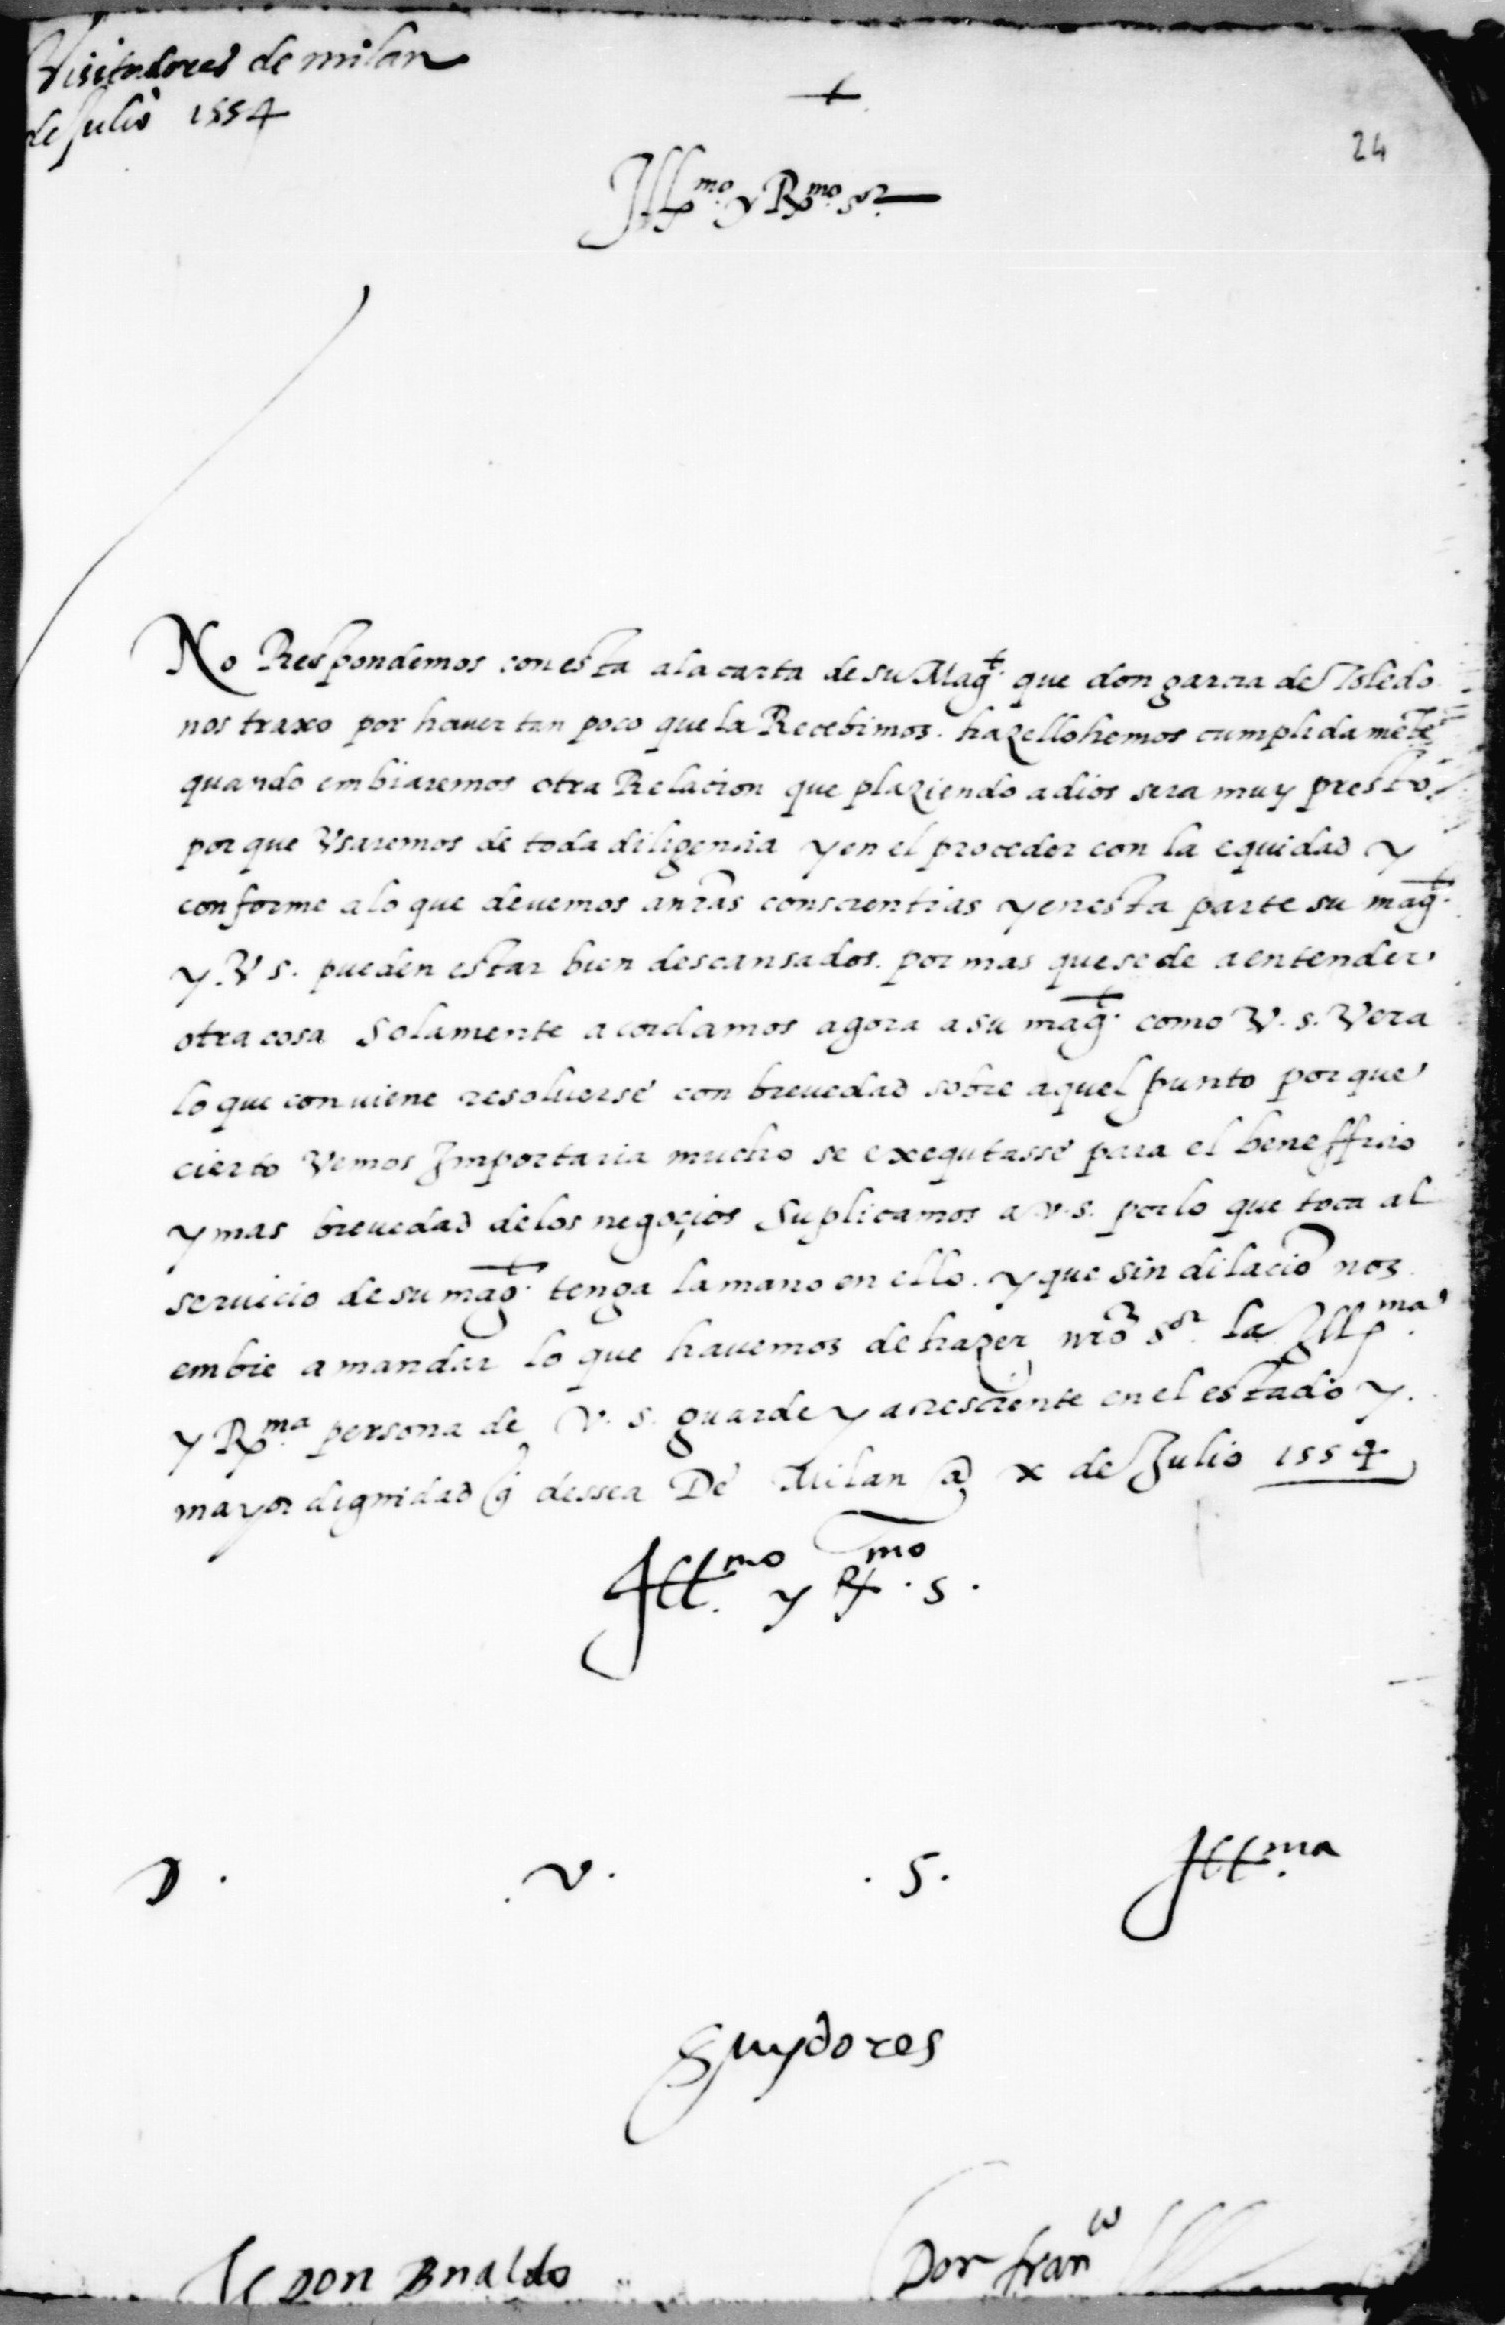 Visitadores de milan
de Julio 1554
24
Ill.mo y R.mo s.or
No Respondemos con esta a la carta de su Mag.t que don garcia de Toledo
nos traxo por hauer tan poco que la Recebimos. hazello hemos cumplidamẽte
quando embiaremos otra Relacion que plaziendo a dios sera muy presto
por que Vsaremos de toda diligencia y en el proceder con la equidad y
conforme a lo que deuemos a nr̃as conscientias y en esta parte su mag.t
y. V s. pueden estar bien descansados. por mas que se de a entender
otra cosa Solamente acordamos agora a su mag.t como V. s. Vera
lo que conuiene resoluerse con breuedad sobre aquel punto por que
cierto Vemos Importaria mucho se exequtasse para el benefficio
y mas breuedad de los negoçios Suplicamos a v. s. por lo que toca al
seruicio de su mag.t tenga la mano en ello. y que sin dilaciõ nos
embie a mandar lo que hauemos de hazer nr̃o s.or la Ill.ma
y R.ma persona de V. s. guarde y acresciente en el estado y.
mayor dignidad q̃ dessea De Milan a x de Julio 1554
Ill.mo y R.mo . s .
D . . v . . s . Ill.ma
Seruydores
Don Bnaldo
Don fran.co